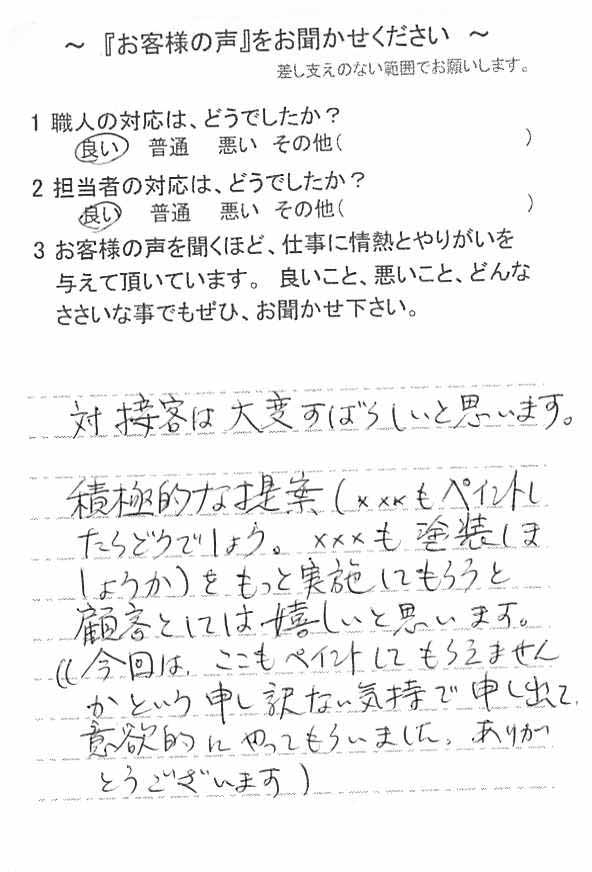 ～ 『お客様の声』をお聞かせください ～
差し支えのない範囲でお願いします。
1 職人の対応は、どうでしたか？
良い 普通 悪い その他( )
2 担当者の対応は、どうでしたか？
良い 普通 悪い その他( )
3 お客様の声を聞くほど、仕事に情熱とやりがいを
与えて頂いています。 良いこと、悪いこと、どんな
ささいな事でもぜひ、お聞かせ下さい。
対接客は大変すばらしいと思います。
積極的な提案(×××もペイントし
たらどうでしょう。×××も塗装しま
しょうか)をもっと実施してもらうと
顧客としては嬉しいと思います。
((今回は、ここもペイントしてもらえません
かという申し訳ない気持で申し出て、
意欲的にやってもらいました。ありが
とうございます)